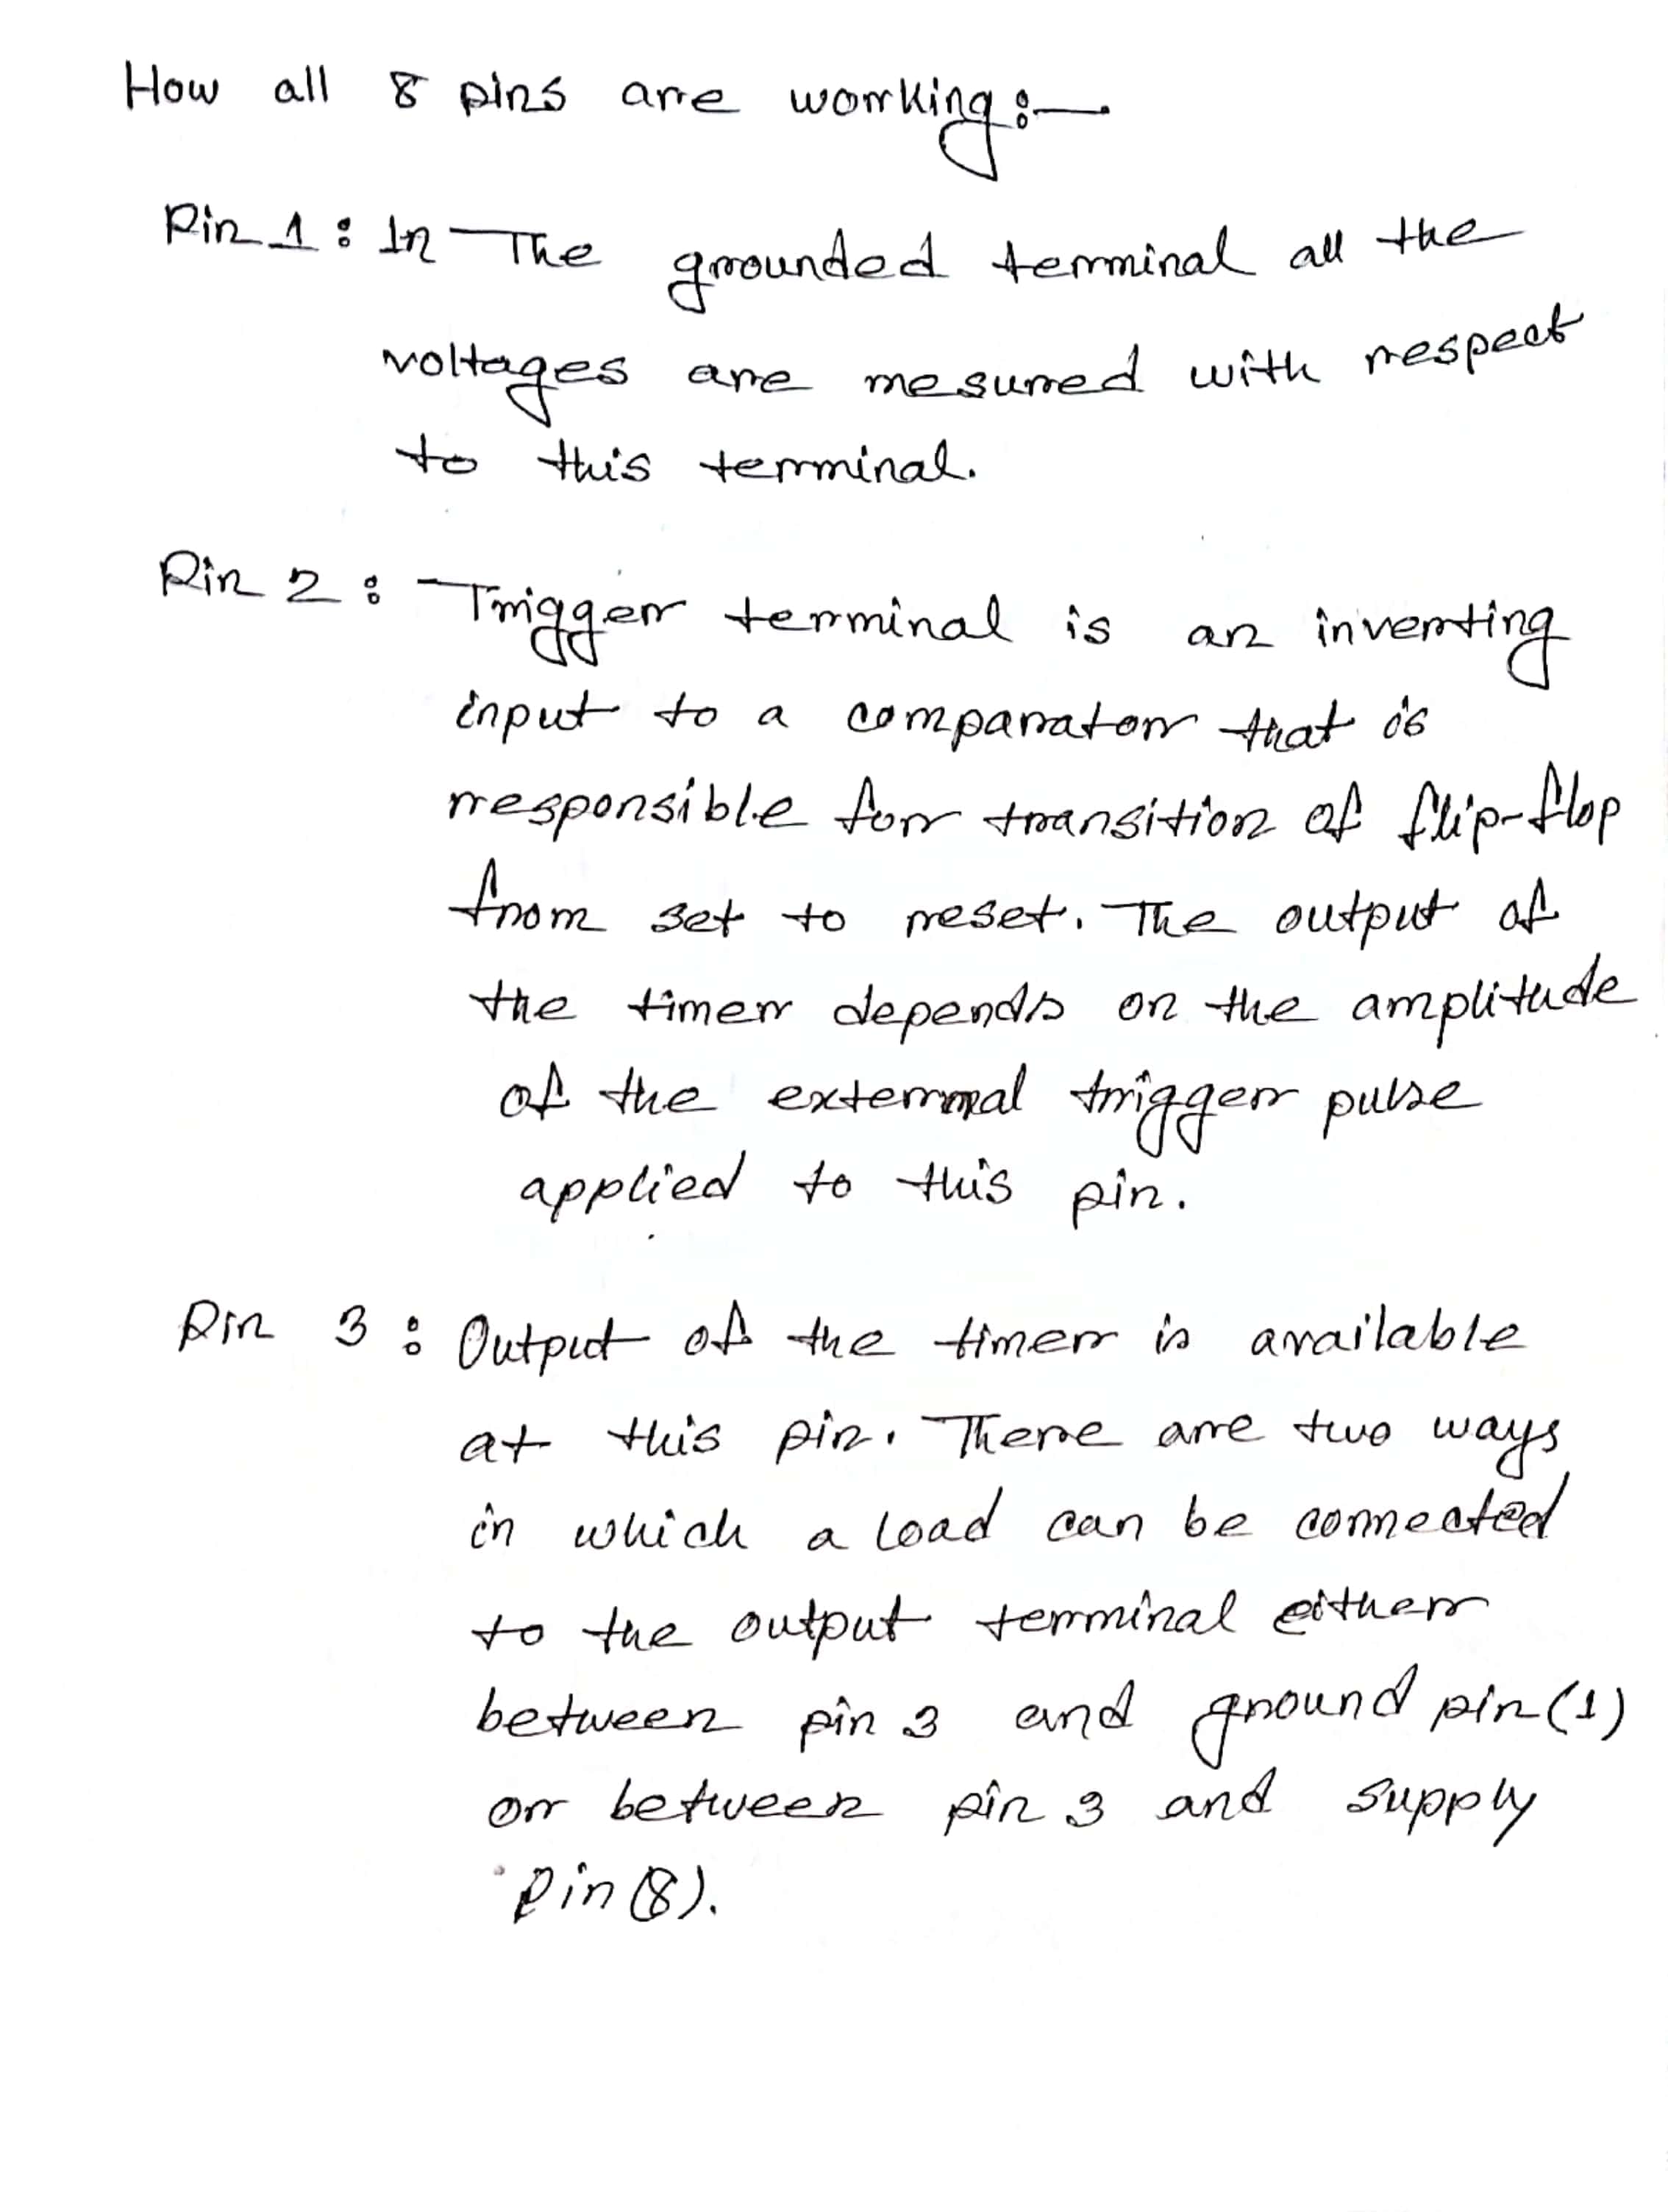 How all 8 pins are working:—
Pin 1: In The grounded terminal all the
voltages are mesured with respect
to this terminal.
Pin 2: Trigger terminal is an inverting
input to a comparator that is
responsible for transition of flip-flop
from set to reset. The output of
the timer depends on the amplitude
of the external trigger pulse
applied to this pin.
Pin 3: Output of the timer is available
at this pin. There are two ways
in which a load can be connected
to the output terminal either
between pin 3 and ground pin (1)
or between pin 3 and supply
Pin (8).